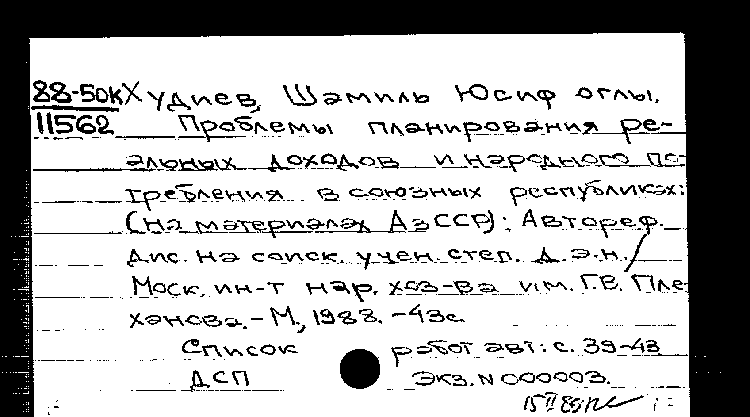 88-50к Худиев, Шамиль Юсиф оглы.
11562 Проблемы планирования ре-
альных доходов и народного по-
требления в союзных республиках:
(на материалах АзССР): Автореф.
дис. на соиск. учен. степ. д.э.н./
Моск. ин-т нар. хоз-ва им. Г.В. Пле-
ханова. - М., 1988. - 43с.
Список работ авт: с. 39-43
ДСП Экз. N 000003.
15 II 89